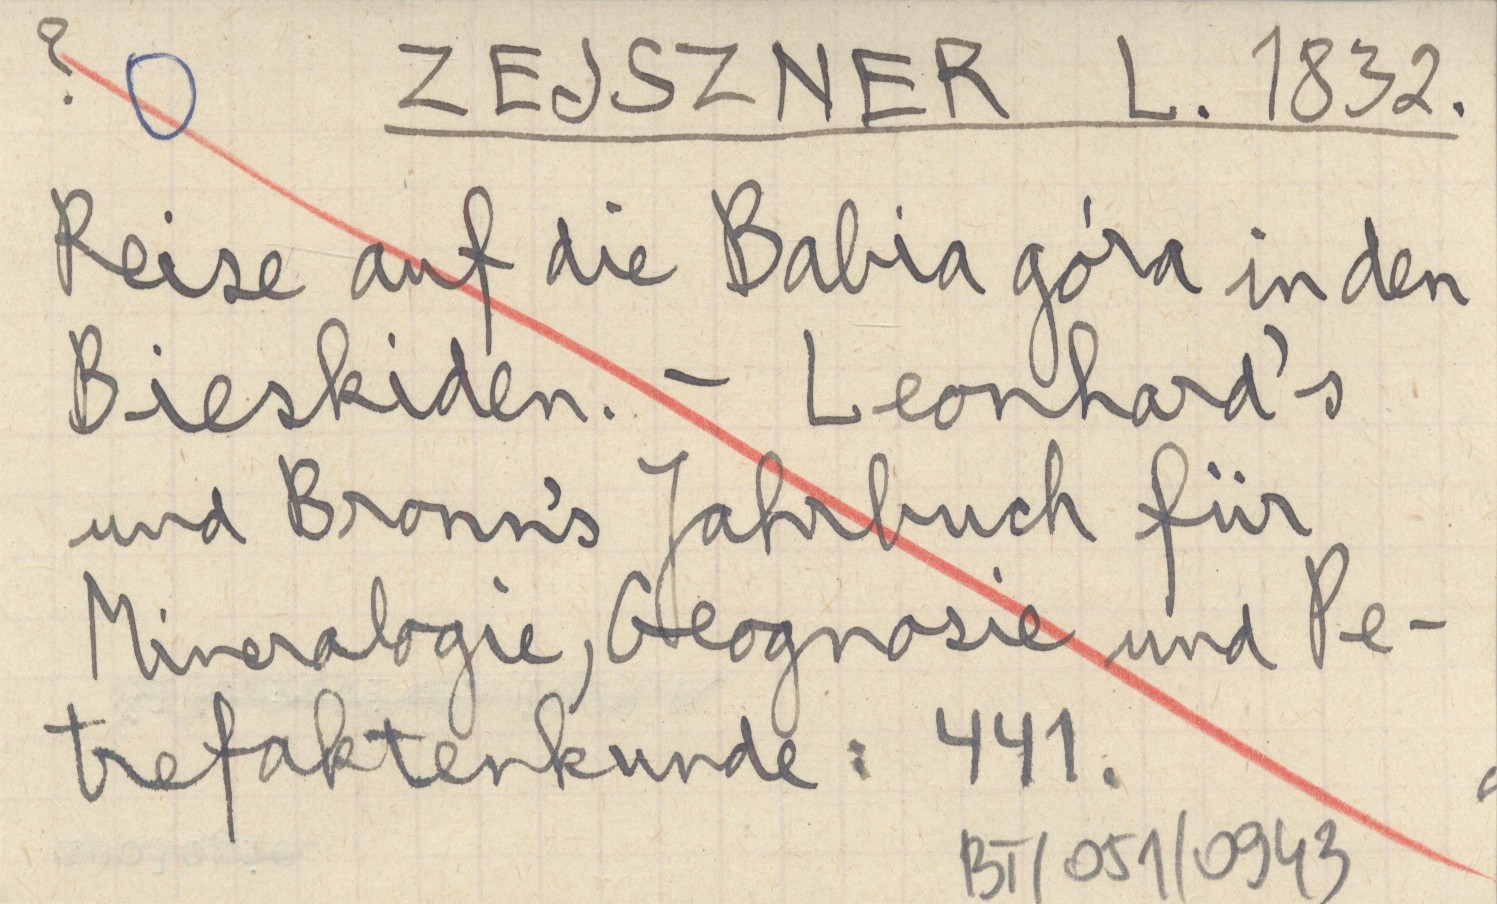 ? O ZEJSZNER L. 1832.
Reise auf die Babia góra in den
Bieskiden. – Leonhard's
und Bronn's Jahrbuch für
Mineralogie, Geognosie und Pe-
trefaktenkunde : 441.
BT/051/0943